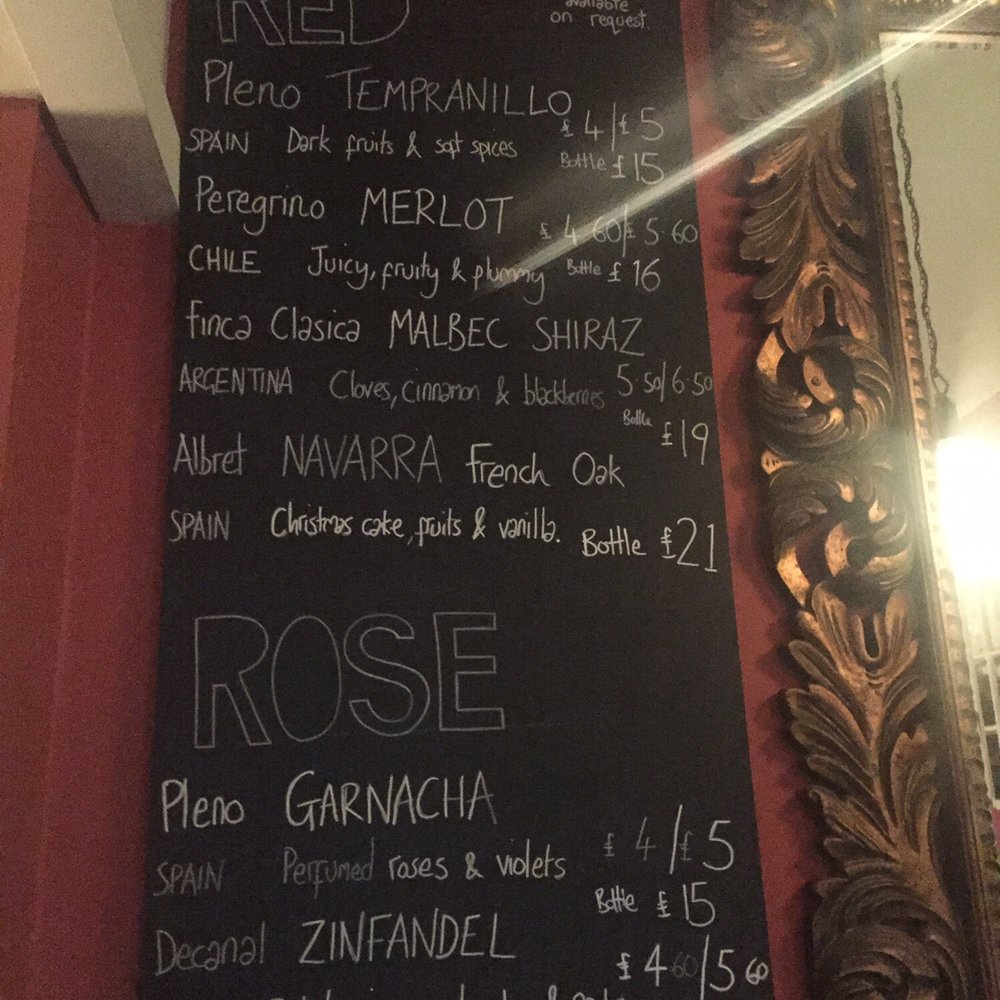 RED
available
on request.
Pleno TEMPRANILLO
£4/£5
SPAIN Dark fruits & soft spices
Bottle £15
Peregrino MERLOT
£4.60/£5.60
CHILE Juicy, fruity & plummy
Bottle £16
Finca Clasica MALBEC SHIRAZ
ARGENTINA Cloves, cinnamon & blackberries 5.50/6.50
Bottle £19
Albret NAVARRA French Oak
SPAIN Christmas cake, fruits & vanilla. Bottle £21
ROSE
Pleno GARNACHA
£4/£5
SPAIN Perfumed roses & violets
Bottle £15
Decanal ZINFANDEL
£4.60/5.60